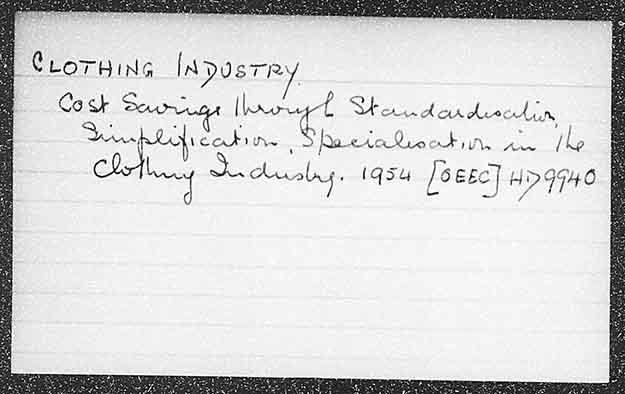 CLOTHING INDUSTRY
Cost Savings through Standardisation,
Simplification, Specialisation in the
Clothing Industry. 1954 [OEEC] HD9940